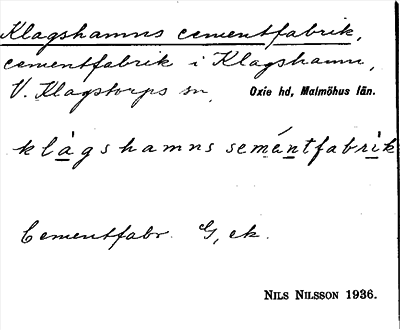 Klagshamns cementfabrik,
cementfabrik i Klagshamn,
V. Klagstorps sn, Oxie hd, Malmöhus län.
klàgshamns semántfabrik
Cementfabr. G, ek.
NILS NILSSON 1936.